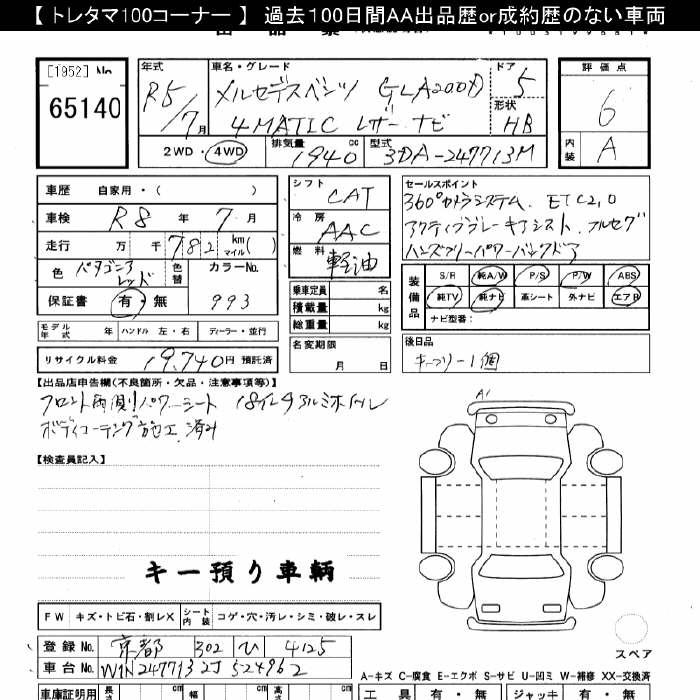 【 トレタマ100コーナー 】 過去100日間AA出品歴or成約歴のない車両
[1952] No.
65140
年式 R5/7月
車名・グレード メルセデスベンツ GLA200D
4MATIC レザー ナビ
ドア 5
形状 HB
2WD・4WD
排気量 1940 cc
型式 3DA-247713M
評価点 6
内装 A
車歴 自家用・( )
車検 R8 年 7 月
走行 万 千 782 km マイル ( )
色 パタゴニアレッド
色替
カラーNo. 993
保証書 有・無
シフト CAT
冷房 AAC
燃料 軽油
乗車定員 名
積載量 kg
総重量 kg
セールスポイント
360°カメラシステム、ETC2.0
アクティブブレーキアシスト、フルセグ
ハンズフリーパワーバックドア
装備品 S/R 純A/W P/S P/W ABS
純TV 純ナビ 革シート 外ナビ エアB
ナビ型番:
モデル年式 年 ハンドル 左・右 ディーラー・並行
リサイクル料金 19,740円 預託済
名変期限 月 日
後日品
キーフリー1個
【出品店申告欄(不良箇所・欠品・注意事項等)】
フロント両側パワーシート 18インチアルミホイール
ボディコーティング施工済み
【検査員記入】
A1
キー預り車輌
FW キズ・トビ石・割レX シート内装 コゲ・穴・汚レ・シミ・破レ・スレ
登録No. 京都 302 ひ 4125
車台No. W1N2477132J524962
スペア
A-キズ C-腐食 E-エクボ S-サビ U-凹ミ W-補修 XX-交換済
車庫証明用 長さ cm 幅 cm 高さ cm
工具 有・無 ジャッキ 有・無